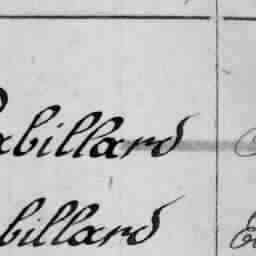 abillard
billard